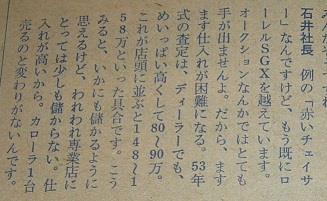 石井社長　例の「赤いチェイサ
ー」なんですけど、もう既にロ
ーレルSGXを越えています。
オークションなんかではとても
手が出ませんよ。だから、ます
ます仕入れが困難になる。53年
式の査定は、ディーラーでも、
めいっぱい高くして80～90万。
これが店頭に並ぶと148～1
58万といった具合です。こう
みると、いかにも儲かるように
思えるけど、われわれ専業店に
とっては少しも儲からない。仕
入れが高いから、カローラ1台
売るのと変わりがないんです。